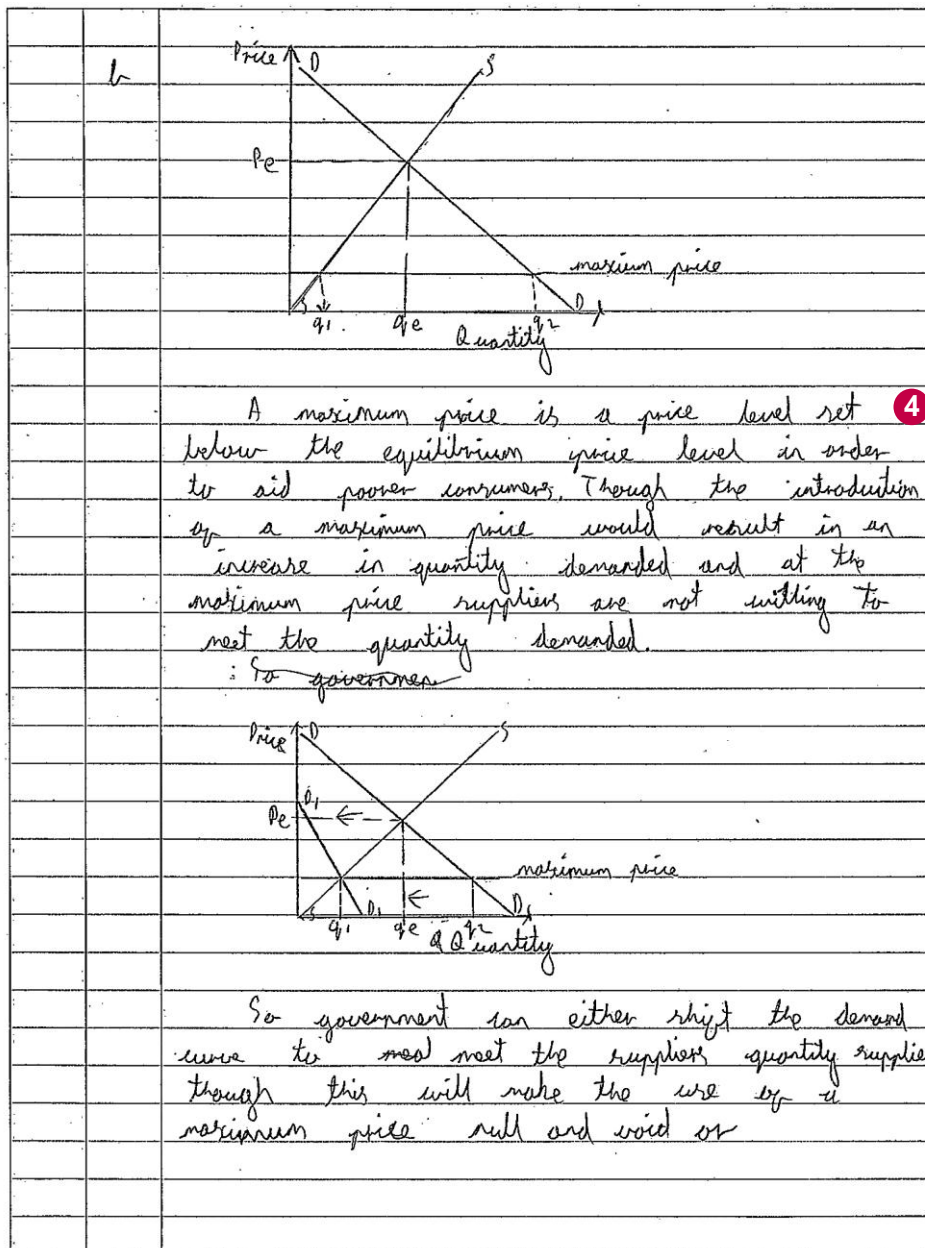 b
Price D S
Pe
maxium price
S D
q1. qe q2
Quantity
A maximum price is a price level set 4
below the equilibrium price level in order
to aid poorer consumers. Though the introduction
of a maximum price would result in an
increase in quantity demanded and at the
maximum price suppliers are not willing to
meet the quantity demanded.
: So governmen
Price D S
D1
Pe
maximum price
S D1 D
q1 qe q2
Q Quantity
So government can either shift the demand
curve to meal meet the suppliers quantity supplie
though this will make the use of a
maximum price null and void or